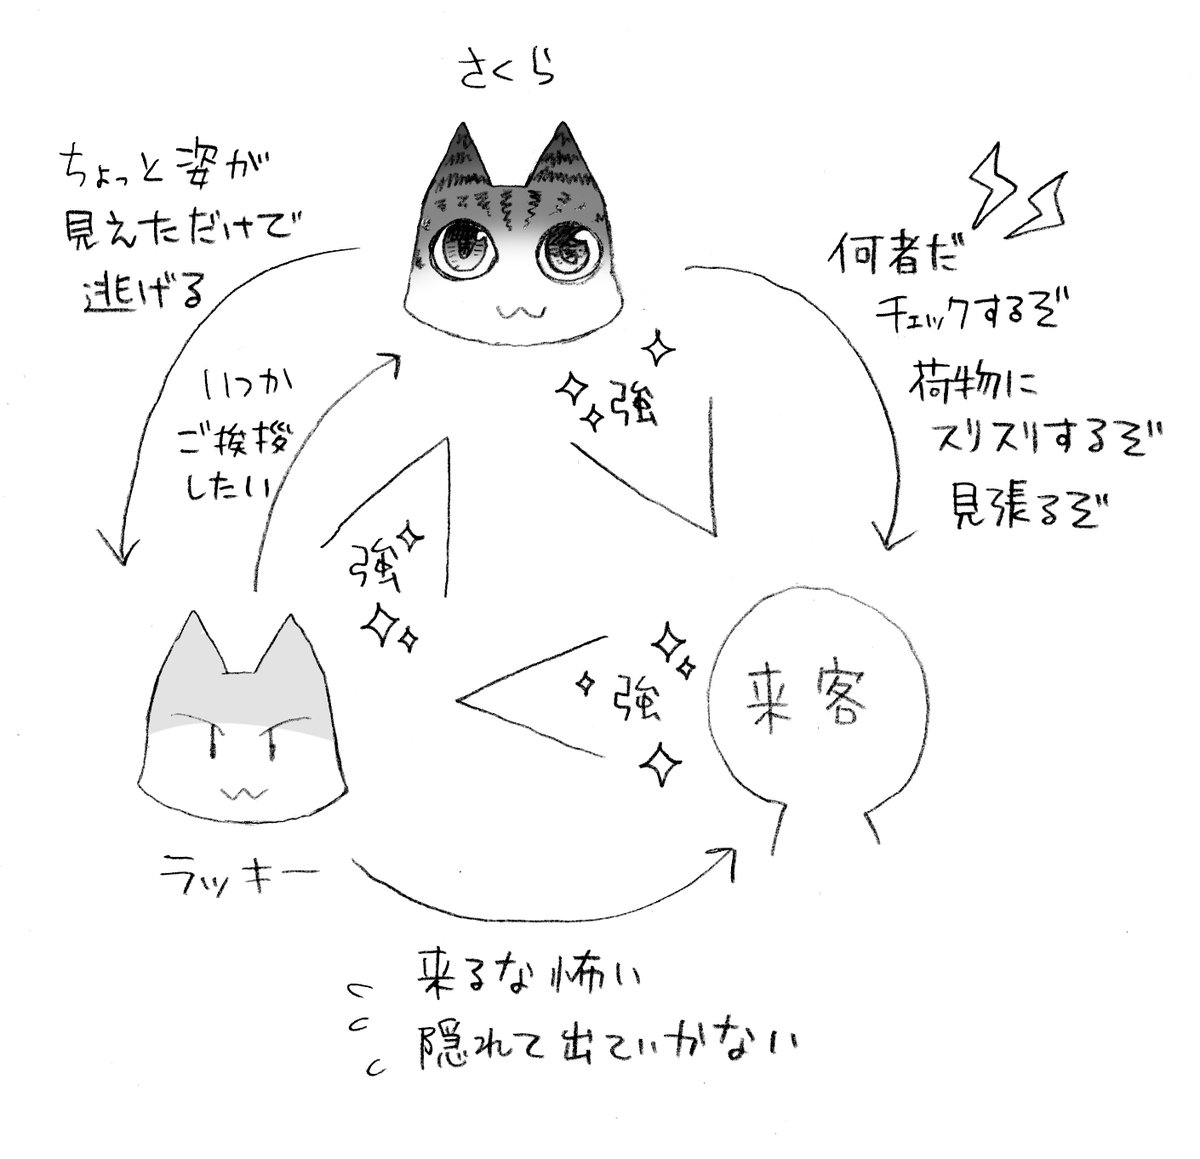 さくら
ちょっと姿が
見えただけで
逃げる
いつか
ご挨拶
したい
何者だ
チェックするぞ
荷物に
スリスリするぞ
見張るぞ
強
強
強
来客
ラッキー
来るな怖い
隠れて出ていかない